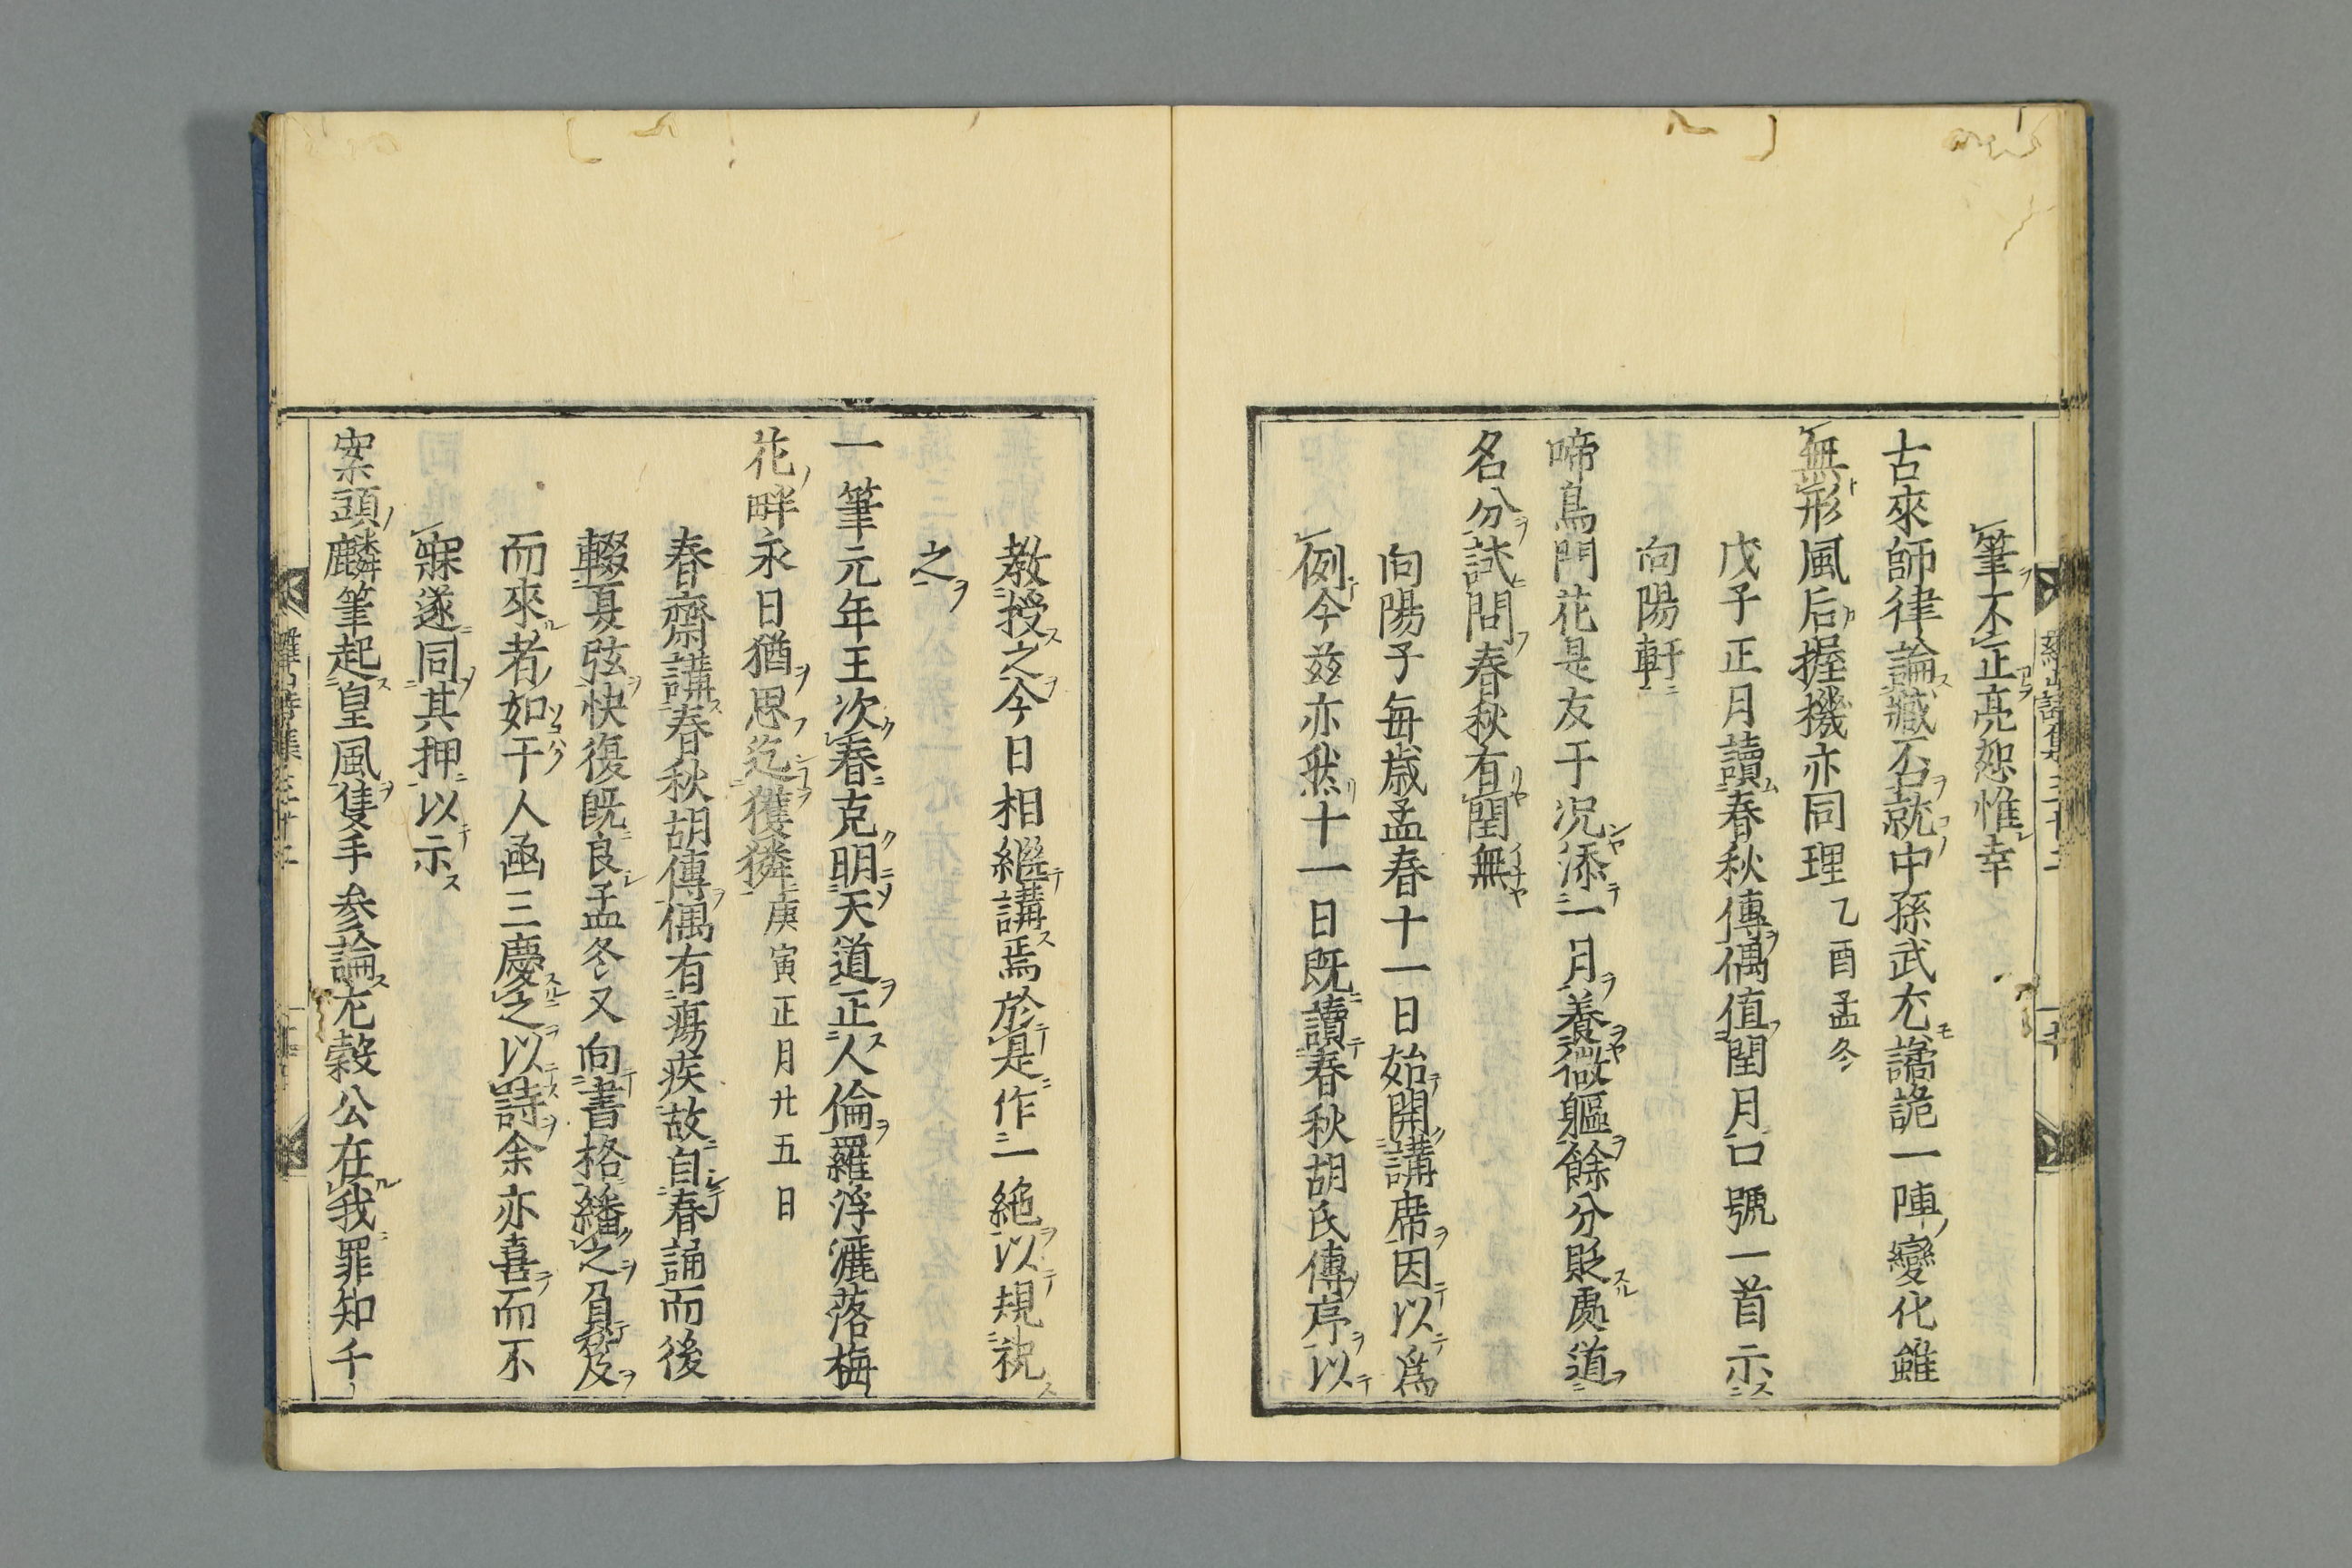 筆不止亮恕惟幸
古來師律論臧否就中孫武尤譎詭一陣變化雖
無形風后握機亦同理 乙酉孟冬
戊子正月讀春秋傳偶值閏月口號一首示
向陽軒
啼鳥門花是友于況添一月養微軀餘分貶處道
名分試問春秋有閏無
向陽子每歲孟春十一日始開講席因以爲
例今茲亦然十一日既讀春秋胡氏傳序以
教授之今日相繼講焉於是作一絶以規祝
之
一筆元年王次春克明天道正人倫羅浮灑落梅
花畔永日猶思迄獲獜 庚寅正月廿五日
春齋講春秋胡傳偶有瘍疾故自春誦而後
輟夏弦快復既良孟冬又向書格繙之負笈
而來者如干人凾三慶之以詩余亦喜而不
寐遂同其押以示
案頭麟筆起皇風隻手參論左穀公在我罪知千